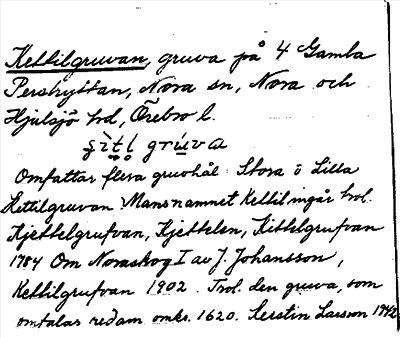 Kettilgruvan, gruva på 4 Gamla
Pershyttan, Nora sn, Nora och
Hjulsjö hd, Örebro l.
gruva
Omfattar flera gruvhål: Stora o Lilla
Kettilgruvan. Mansnamnet Kettil ingår trol.
Kjettelgrufvan, Kjettelen, Kittelgrufvan
1784 Om Noraskog I av J. Johansson,
Kettilgrufvan 1902. Trol. den gruva, som
omtalas redan omkr. 1620. Kerstin Larsson 1942